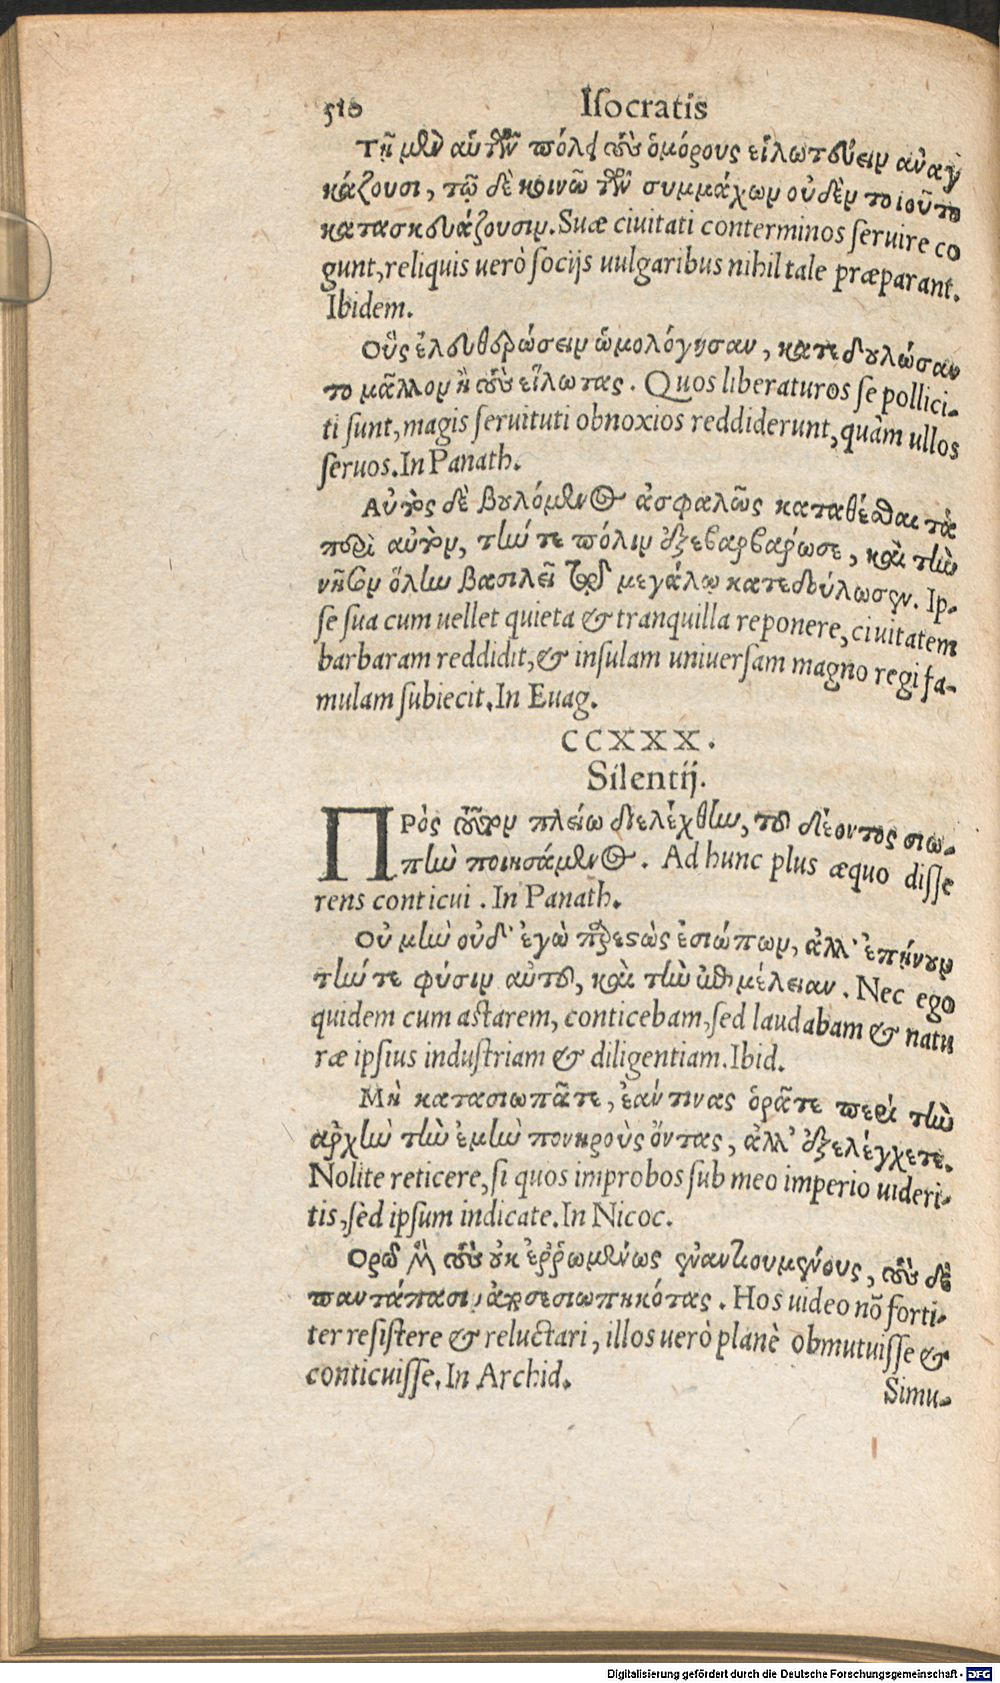 510 Iſocratis
Τῇ μὲν αὑτῶν πόλει τοὺς ὁμόρους εἱλωτεύειν αναγ
κάζουσι, τῷ δὲ κοινῷ τῶν συμμάχων οὐδὲν τοιοῦτο
κατασκευάζουσιν. Suæ ciuitati conterminos ſeruire co
gunt, reliquis uerò ſocijs uulgaribus nihil tale præparant.
Ibidem.
Οὓς ἐλευθερώσειν ὡμολόγησαν, κατεδουλώσαν
το μᾶλλον ἢ τοὺς εἵλωτας. Quos liberaturos ſe pollici-
ti ſunt, magis ſeruituti obnoxios reddiderunt, quàm ullos
ſeruos. In Panath.
Αὐτὸς δὲ βουλόμενος ἀσφαλῶς καταθέσθαι τὰ
περὶ αὐτὸν, τήν τε πόλιν ἐξεβαρβάρωσε, καὶ τὴν
νῆσον ὅλην βασιλεῖ τῷ μεγάλῳ κατεδούλωσεν. Ip-
ſe ſua cum uellet quieta & tranquilla reponere, ciuitatem
barbaram reddidit, & inſulam uniuerſam magno regi fa-
mulam ſubiecit. In Euag.
CCXXX.
Silentij.
Πρὸς τοῦτον πλείω διελέχθην, τοῦ δέοντος σιω-
πὴν ποιησάμενος. Ad hunc plus æquo diſſe
rens conticui. In Panath.
Οὐ μὴν οὐδ' ἐγὼ παρεστὼς ἐσιώπων, ἀλλ' ἐπῄνουν
τήν τε φύσιν αὐτοῦ, καὶ τὴν ἐπιμέλειαν. Nec ego
quidem cum aſtarem, conticebam, ſed laudabam & natu
ræ ipſius induſtriam & diligentiam. Ibid.
Μὴ κατασιωπᾶτε, ἐάν τινας ὁρᾶτε περὶ τὴν
αρχὴν τὴν ἐμὴν πονηροὺς ὄντας, ἀλλ' ἐξελέγχετε.
Nolite reticere, ſi quos improbos ſub meo imperio uideri-
tis, ſed ipſum indicate. In Nicoc.
Ορῶ τοὺς οὐκ ἐῤῥωμένως ἐναντιουμένους, τοὺς δὲ
παντάπασιν ἀποσεσιωπηκότας. Hos uideo nõ forti-
ter reſiſtere & reluctari, illos uerò planè obmutuiſſe &
conticuiſſe. In Archid.
Simu-
Digitalisierung gefördert durch die Deutsche Forschungsgemeinschaft - DFG